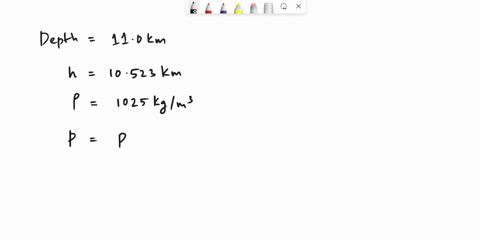 Depth = 11.0 km
h = 10.523 km
ρ = 1025 kg/m³
P = P